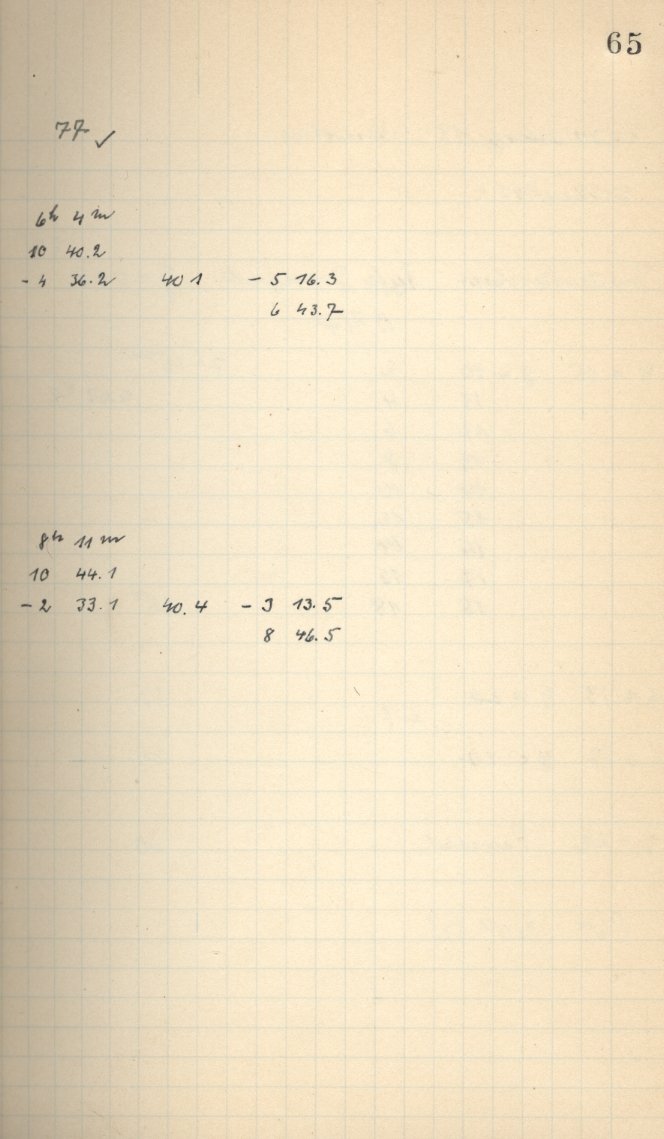 65
77 ✓
6h 4m
10 40.2
- 4 36.2 40 1 - 5 16.3
6 43.7
8h 11m
10 44.1
- 2 33.1 40.4 - 3 13.5
8 46.5